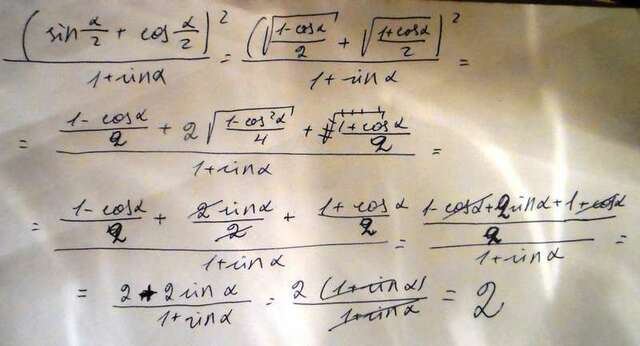 (sin α/2 + cos α/2)² / (1+sinα) = (√((1-cosα)/2) + √((1+cosα)/2))² / (1+sinα) =
= ((1-cosα)/2 + 2√((1-cos²α)/4) + (1+cosα)/2) / (1+sinα) =
= ((1-cosα)/2 + 2sinα/2 + (1+cosα)/2) / (1+sinα) = ((1-cosα+2sinα+1+cosα)/2) / (1+sinα) =
= (2+2sinα) / (1+sinα) = 2(1+sinα) / (1+sinα) = 2